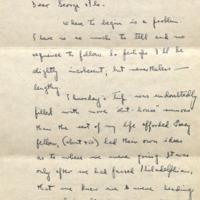 Dear George + Flo.
Where to begin is a problem.
There is so much to tell and no
sequence to follow. So perhaps I'll be
slightly incoherent, but nevertheless —
lengthy
Thursday's trip was undoubtedly
filled with more out-house rumors
than the rest of my life afforded. Every
fellow, (about 610) had their own ideas
as to where we were going. It was
only after we had passed Philadelphia,
that we knew we were heading